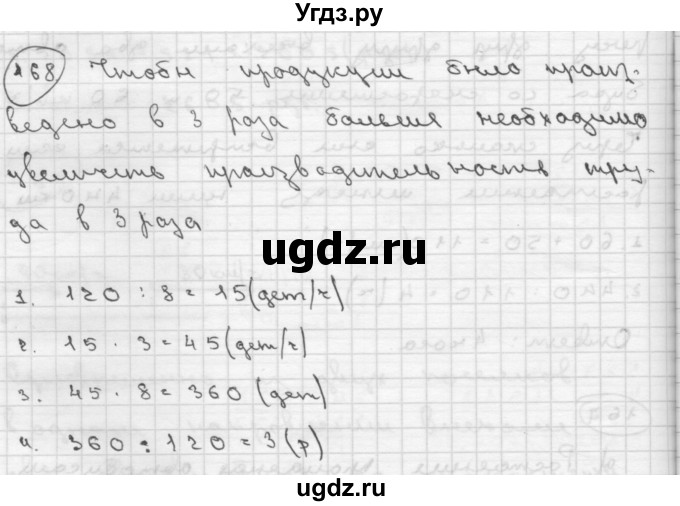 Угдз.ру
168 Чтобы продукции было произ-
ведено в 3 раза больше необходимо
увеличить производительность тру-
да в 3 раза
ugdz.ru
1. 120 : 8 = 15 (дет/ч)
2. 15 · 3 = 45 (дет/ч)
3. 45 · 8 = 360 (дет)
4. 360 : 120 = 3 (р)
ugdz.ru